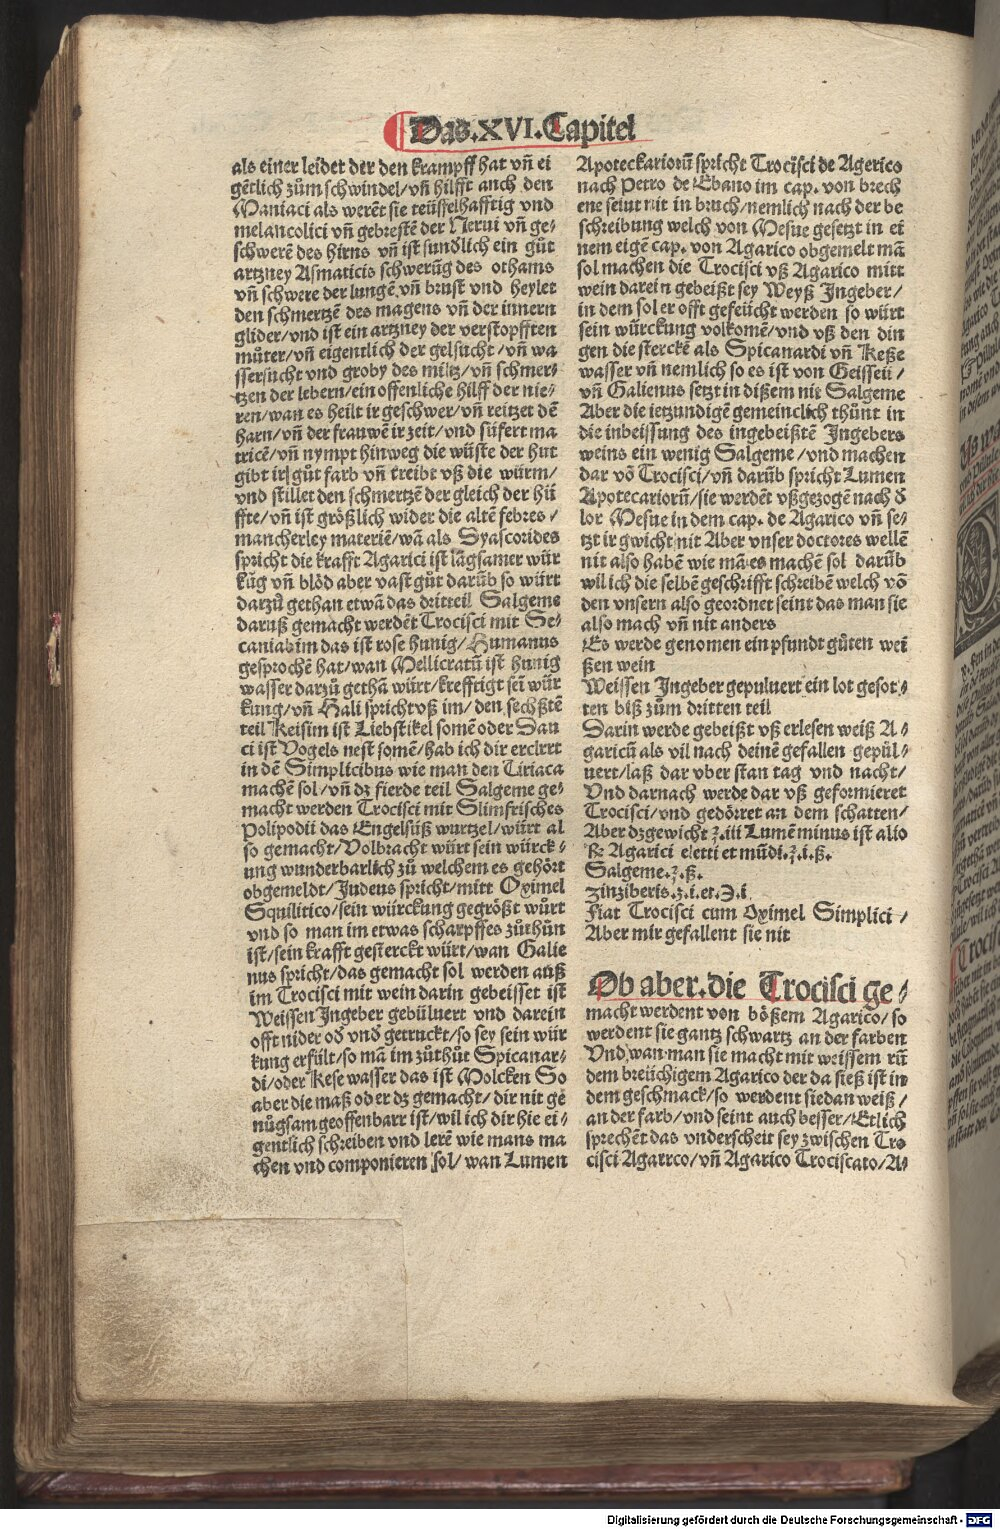 Das.XVI.Capitel
als einer leidet der den krampff hat vñ ei
gẽtlich zům schwindel/vñ hilfft auch den
Maniaci als werẽt sie teüffelhafftig vnd
melancolici vñ gebrestẽ der Nerui vñ ge⸗
schwerẽ des hirns vñ ist sunđlich ein gůt
artzney Asmaticis schwerũg des othams
vñ schwere der lungẽ vñ brust vnd heylet
den schmertzẽ des magens vñ der innern
glider/vnd ist ein artzney der verstopfften
můter/vñ eigentlich der gelsucht/vñ wa
ssersucht vnd groby des miltz/vñ schmer⸗
tzen der lebern/ein offenliche hilff der nie⸗
ren/wan es heilt ir geschwer/vñ reitzet dẽ
harn/vñ der frauwẽ ir zeit/vnd süfert ma
tricẽ/vñ nympt hinweg die wüste der hut
gibt ir gůt farb vñ treibt vß die würm/
vnd stillet den schmertzẽ der gleich der hü
ffte/vñ ist größlich wider die altẽ febres/
mancherley materiẽ/wã als Dyascorides
spricht die krafft Agarici ist lãgsamer wür
kũg vñ blöd aber vast gůt darũb so würt
darzů gethan etwã das dritteil Salgeme
daruß gemacht werdẽt Trocisci mit Se⸗
caniabim das ist rose hunig/Humanus
gesprochẽ hat/wan Mellicratũ ist hunig
wasser darzů gethã würt/krefftigt sei wür
kung/vñ Hali spricht vß im/den sechßtẽ
teil Keisim ist Liebstikel somẽ oder Dau
ci ist Vogels nest somẽ/hab ich dir erclrrt
in dẽ Simplicibus wie man den Tiriaca
machẽ sol/vñ dz fierde teil Salgeme ge⸗
macht werden Trocisci mit Slimfrisches
Polipodii das Engelsüß wurtzel/würt al
so gemacht/Volbracht würt sein würck⸗
ung wunderbarlich zů welchem es gehört
obgemeldt/Judeus spricht/mitt Oximel
Squilitico/sein würckung gegrößt würt
vnd so man im etwas scharpffes zůthůn
ist/sein krafft gesterckt würt/wan Galie
nus spricht/das gemacht sol werden auß
im Trocisci mit wein darin gebeisset ist
Weissen Ingeber gebüluert vnd darein
offt nider ođ vnđ getruckt/so sey sein wür
kung erfült/so mã im zůthůt Spicanar⸗
di/oder Kese wasser das ist Molcken So
aber die maß oder dz gemacht/dir nit gẽ
nůgsam geoffenbarr ist/wil ich dir hie ei⸗
gentlich schreiben vnd lerẽ wie mans ma
chen vnd componieren sol/wan Lumen
Apoteckariorũ spricht Trocisci de Agerico
nach Petro de Ebano im cap. von brech
ene seiut nit in bruch/nemlich nach der be
schreibung welch von Mesue gesetzt in ei
nem eigẽ cap. von Agarico obgemelt mã
sol machen die Trocisci vß Agarico mitt
wein darein gebeißt sey Weyß Ingeber/
in dem sol er offt gefeücht werden so würt
sein würckung volkomẽ/vnd vß den din
gen die sterckẽ als Spicanardi vñ Keße
wasser vñ nemlich so es ist von Geisseu/
vñ Galienus setzt in dißem nit Salgeme
Aber die ietzundigẽ gemeinclich thůnt in
die inbeissung des ingebeißtẽ Ingebers
weins ein wenig Salgeme/vnd machen
dar võ Trocisci/vñ darũb spricht Lumen
Apotecariorũ/sie werdẽt vßgezogẽ nach đ
lor Mesue in dem cap. de Agarico vñ se⸗
tzt ir gwicht nit Aber vnser doctores wellẽ
nit also habẽ wie mã es machẽ sol darũb
wil ich die selbẽ geschrifft schreibẽ welch võ
den vnsern also geordnet seint das man sie
also mach vñ nit anders
Es werde genomen ein pfundt gůten wei
ßen wein
Weissen Ingeber gepuluert ein lot gesot⸗
ten biß zům dritten teil
Darin werde gebeißt vß erlesen weiß A⸗
garicũ als vil nach deinẽ gefallen gepül⸗
uert/laß dar vber stan tag vnd nacht/
Vnd darnach werde dar vß geformieret
Trocisci/vnd gedörret an dem schatten/
Aber dz gewicht ʒ.iii Lumẽ minus ist also
℞ Agarici eletti et mũdi.ʒ.i.ß.
Salgeme.ʒ.ß.
zinziberis.ʒ.i.et.℈.i
Fiat Trocisci cum Oximel Simplici/
Aber mir gefallent sie nit
Ob aber.die Trocisci ge⸗
macht werdent von bößem Agarico/so
werdent sie gantz schwartz an der farben
Vnd wan man sie macht mit weissem rũ
dem breüchigem Agarico der da sieß ist in
dem geschmack/so werdent sie dan weiß/
an der farb/vnd seint auch besser/Etlich
sprechẽt das vnderscheit sey zwischen Tro
cisci Agarrco/vñ Agarico Trociscato/A⸗
Digitalisierung gefördert durch die Deutsche Forschungsgemeinschaft - DFG